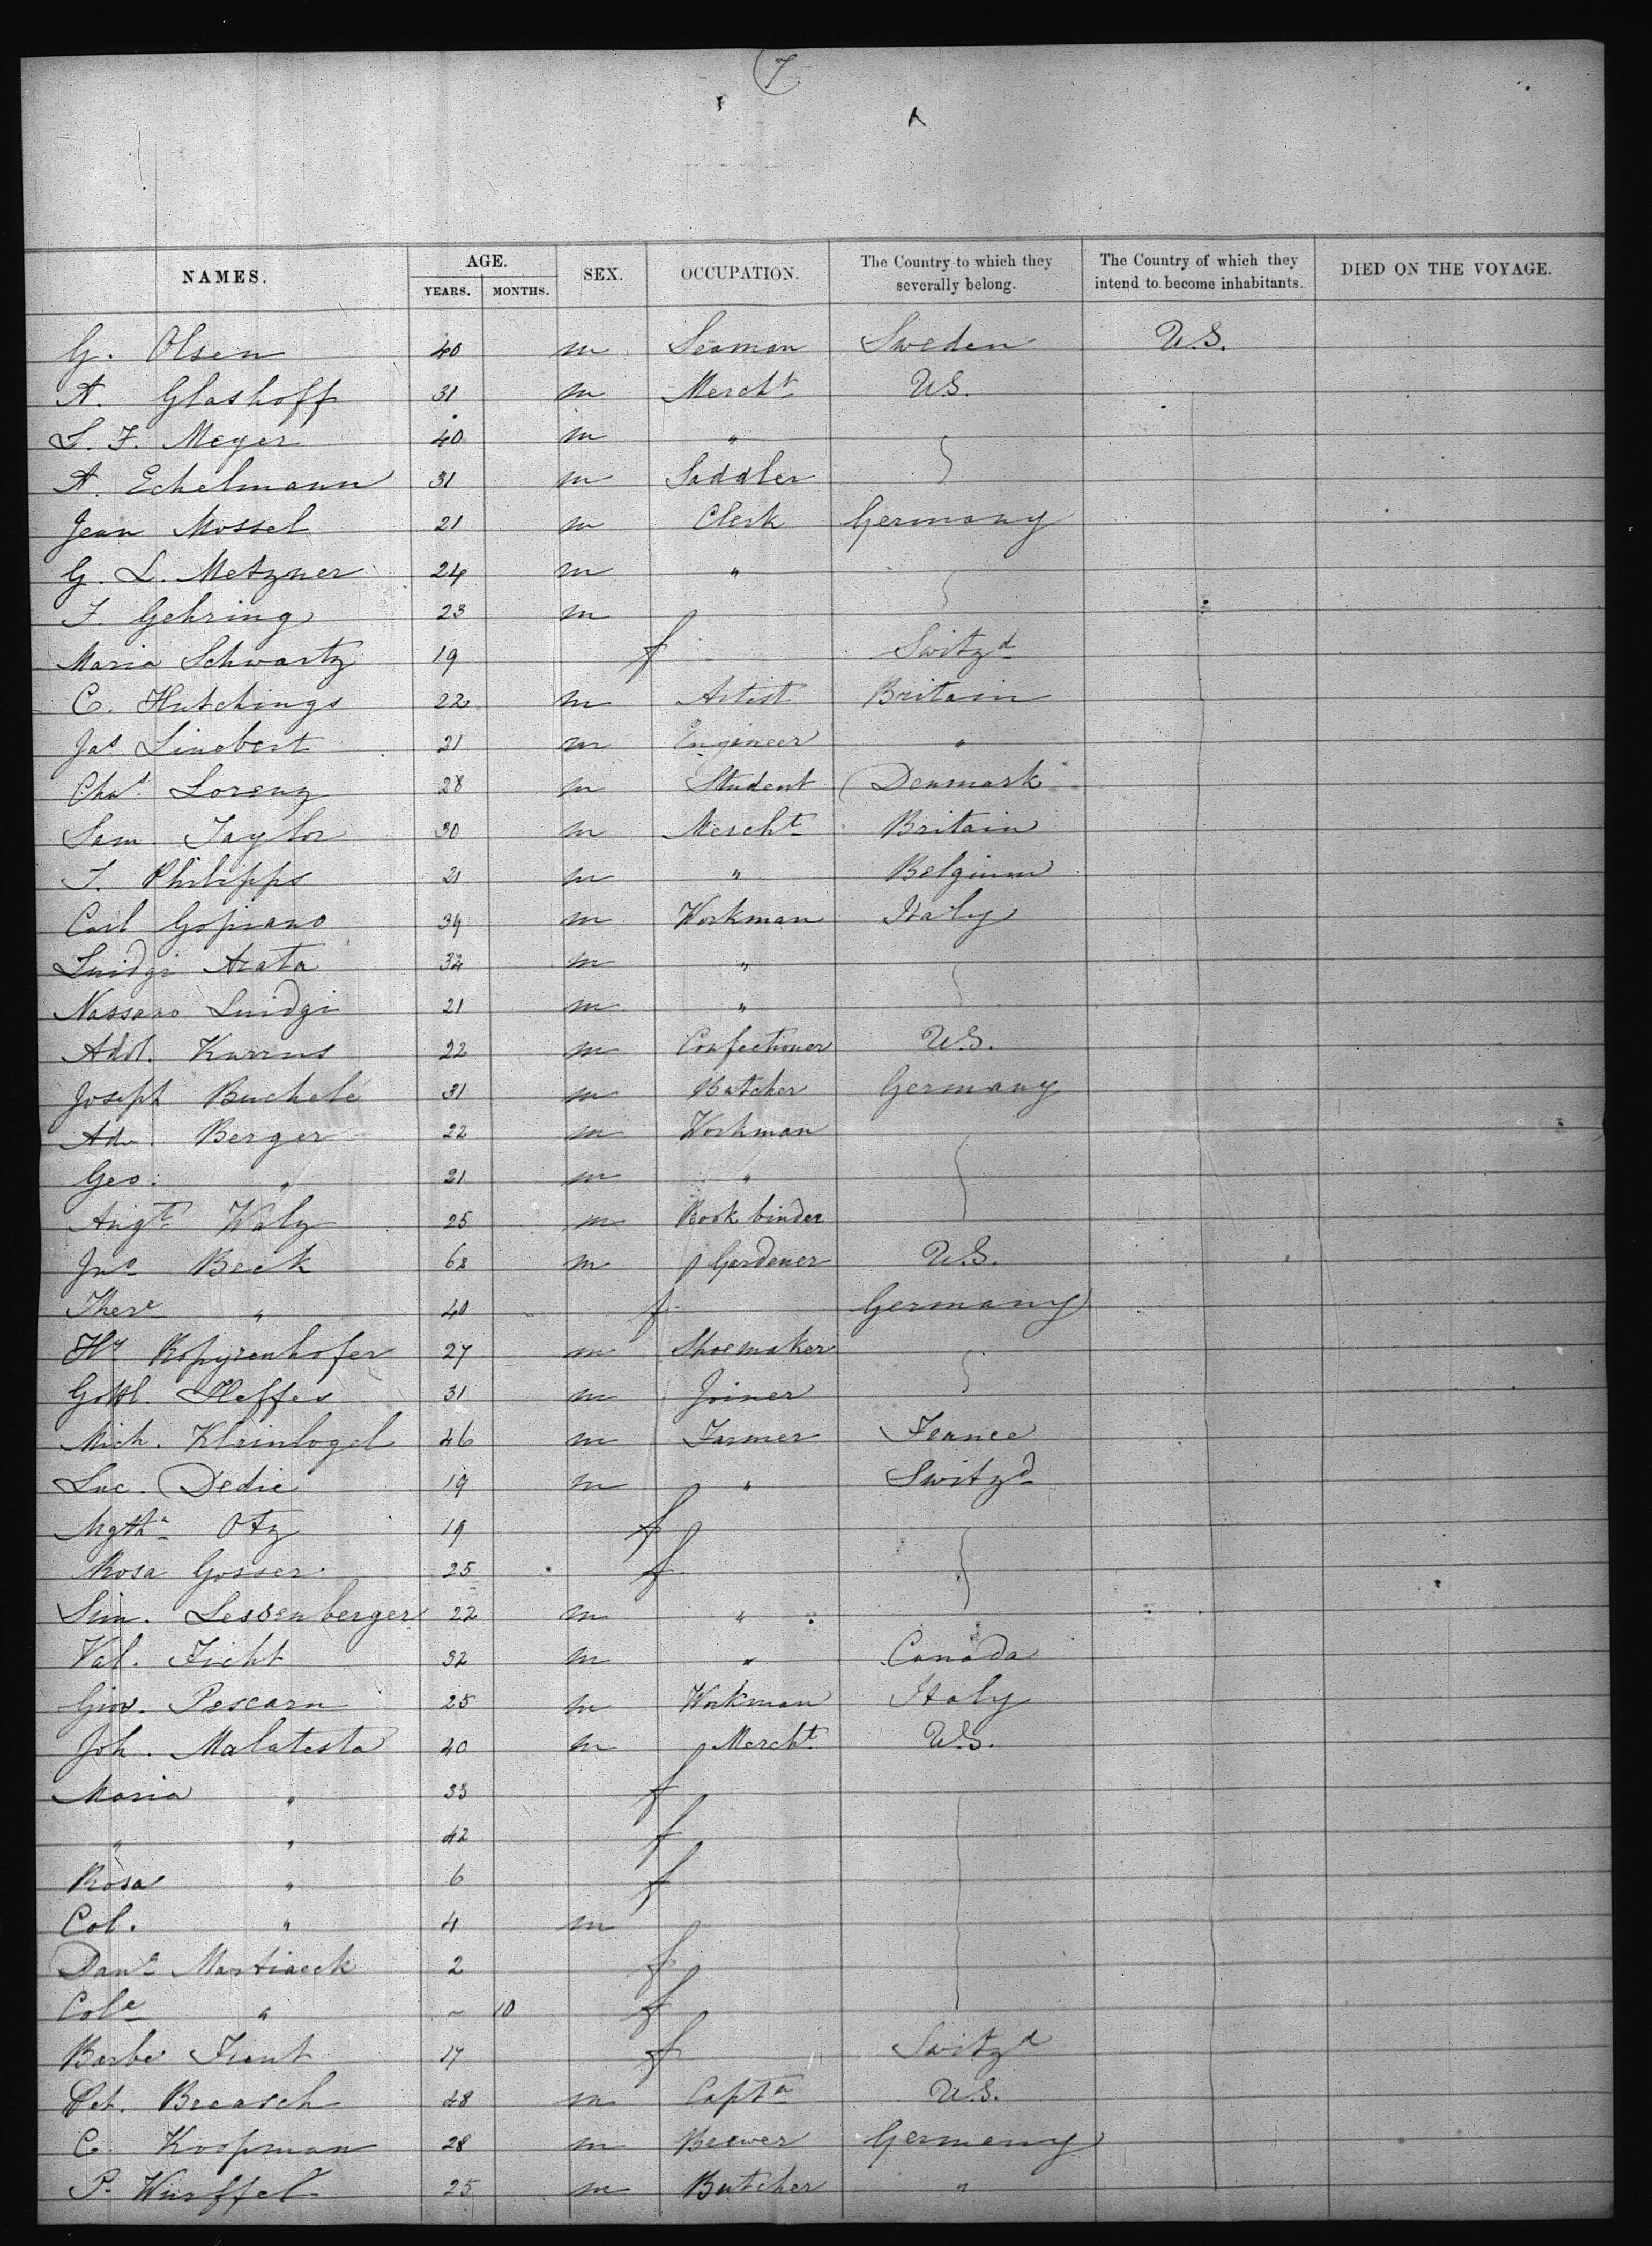 7
NAMES. AGE. SEX. OCCUPATION. The Country to which they severally belong. The Country of which they intend to become inhabitants. DIED ON THE VOYAGE.
YEARS. MONTHS.
G. Olsen 40 m Seaman Sweden U.S.
A. Glashoff 31 m Mercht U.S.
L. F. Meyer 40 m "
A. Echelmann 31 m Saddler
Jean Mossel 21 m Clerk Germany
G. L. Metzner 24 m "
F. Gehring 23 m
Maria Schwartz 19 f Switzd
C. Hutchings 22 m Artist Britain
Jas Linebert 21 m Engineer "
Chas. Lorenz 28 m Student Denmark
Sam. Taylor 30 m Mercht Britain
T. Philipps 21 m " Belgium
Carl Gopiano 34 m Workman Italy
Luidgi Arata 32 m "
Nassaro Luidgi 21 m "
Adol. Kurrus 22 m Confectioner U.S.
Joseph Buchele 31 m Butcher Germany
Ad. Berger 22 m Workman
Geo. " 21 m "
Augte Walz 25 m Book binder
Jno Beck 62 m Gardener U.S.
There " 40 f Germany
Hy Ropyzenhofer 27 m Shoemaker
Gottl. Heffes 31 m Joiner
Mich. Kleinlogel 46 m Farmer France
Luc. Dedie 19 m " Switzd
Mgtha Otz 19 f
Rosa Gosser 25 f
Sim. Lessenberger 22 m "
Val. Ficht 32 m " Canada
Giov. Pescara 25 m Workman Italy
Joh. Malatesta 40 m Mercht U.S.
Maria " 33 f
" " 42 f
Rosa " 6 f
Col. " 4 m
Dane Martiacck 2 f
Cole " ~ 10 f
Barbe Front 17 f Switzd
Pet. Breasch 48 m Capta U.S.
C. Koopman 28 m Brewer Germany
P. Wurffel 25 m Butcher "